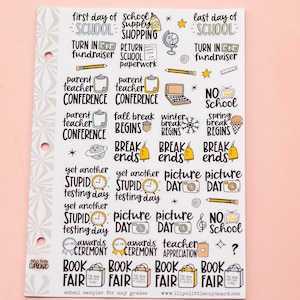 first day of school & last day of
SCHOOL supply SCHOOL
SHOPPING
TURN IN RETURN TURN IN
fundraiser SCHOOL fundraiser
paperwork
parent parent
teacher teacher NO
CONFERENCE CONFERENCE School
parent fall break winter spring
teacher BEGINS break BREAK
CONFERENCE BEGINS BEGINS
BREAK BREAK BREAK
ENDS ENDS ENDS
yet another yet another picture picture
STUPID STUPID DAY DAY
testing DAY testing DAY
yet another picture picture NO
STUPID DAY DAY School
testing DAY
awards awards teacher ?
CEREMONY CEREMONY APPRECIATION
BOOK BOOK BOOK BOOK
FAIR FAIR FAIR FAIR
school sampler for any grades www.lilyslittlecopboard.com